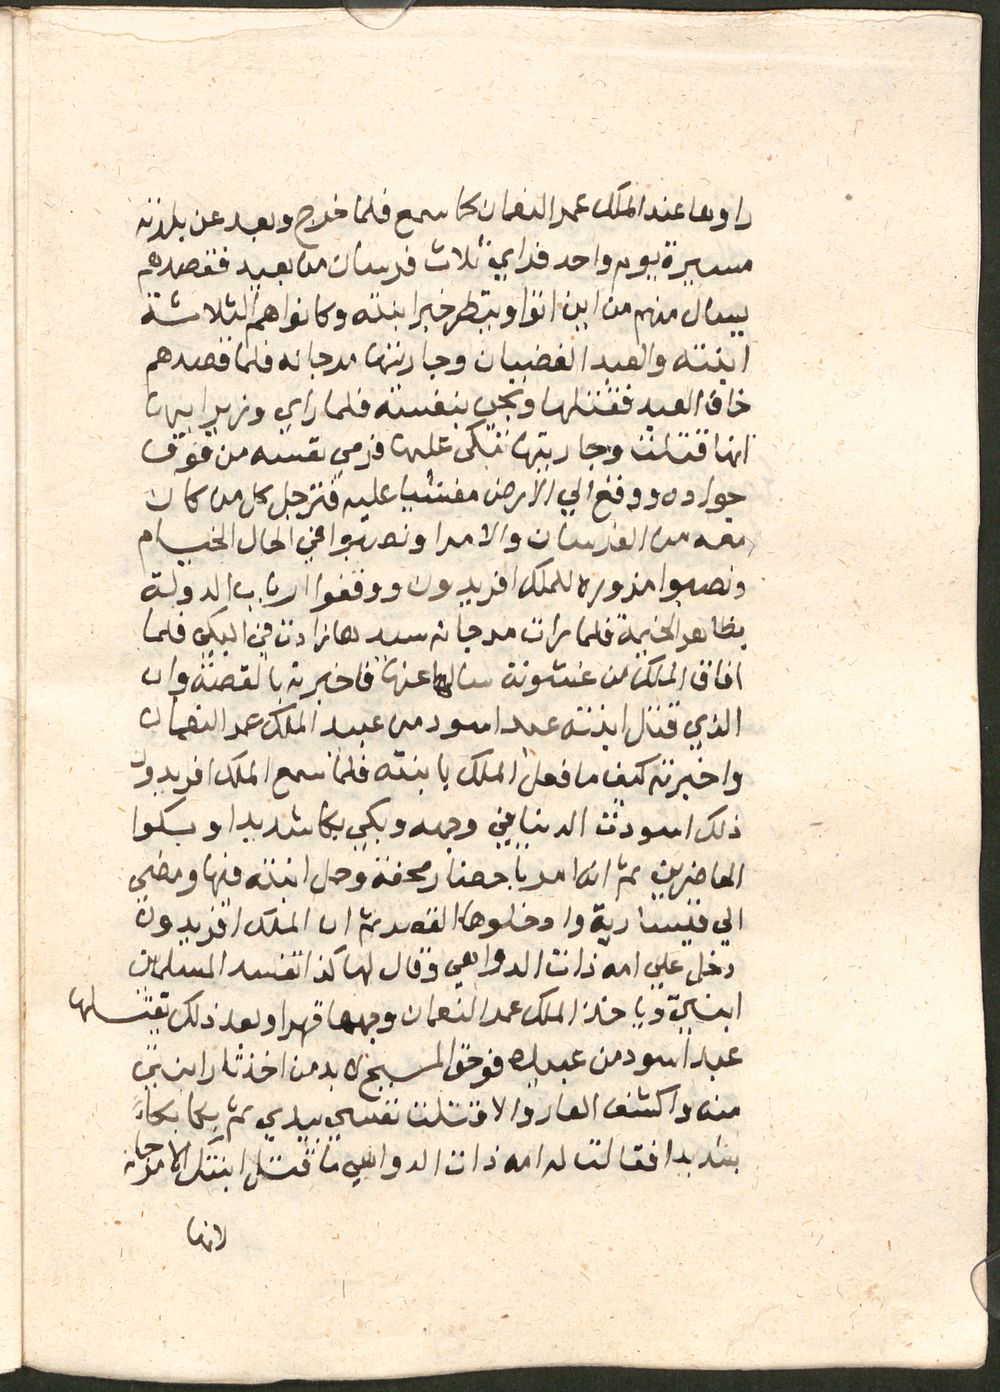 راوها عند الملك عمر النعمان كما سمع فلما خرج وبعد عن بلدته
مسيرة يوم واحد فراي ثلاث فرسان من بعيد فقصدهم
يسال منهم من اين اتوا وينظر خبر ابنته وكانوا هم الثلاثة
ابنته والعبد الغضبان وجاريتها مرجانه فلما قصدهم
خاف العبد فقتلها ونجي بنفسه فلما راي ونزير ابيها
انها قتلت وجاريتها تبكى عليها فرمي نفسه من فوق
جواده ووقع الي الارض مغشيا عليه فترجل كل من كان
معه من الفرسان والامرا ونصبوا في الحال الخيام
ونصبوا مزوره للملك افريدون ووقفوا ارباب الدولة
بظاهر الخيمة فلما رات مرجانه سيدها زادت في البكى فلما
افاق الملك من غشوته سالها عنها فاخبرته بالقصة وان
الذي قتل ابنته عبد اسود من عبيد الملك عمر النعمان
واخبرته كيف ما فعل الملك بابنته فلما سمع الملك افريدون
ذلك اسودت الدنيا في وجهه وبكي بكا شديدا وبكوا
الحاضرين ثم انه امر باحضار محفة وحمل ابنته فيها ومضي
الي قيسارية وادخلوها القصر ثم ان الملك افريدون
دخل علي امه ذات الدواهي وقال لها كذا تفسد المسلمين
ابنتي وياخذ الملك عمر النعمان وجهها قهرا وبعد ذلك تقتلها
عبد اسود من عبيده فوحق المسيح لا بد من اخذ ثار ابنتي
منه واكشف العار والا قتلت نفسي بيدي ثم بكا بكاء
شديدا فقالت له امه ذات الدواهي ما قتل ابنتك الا مرجانه
لانها